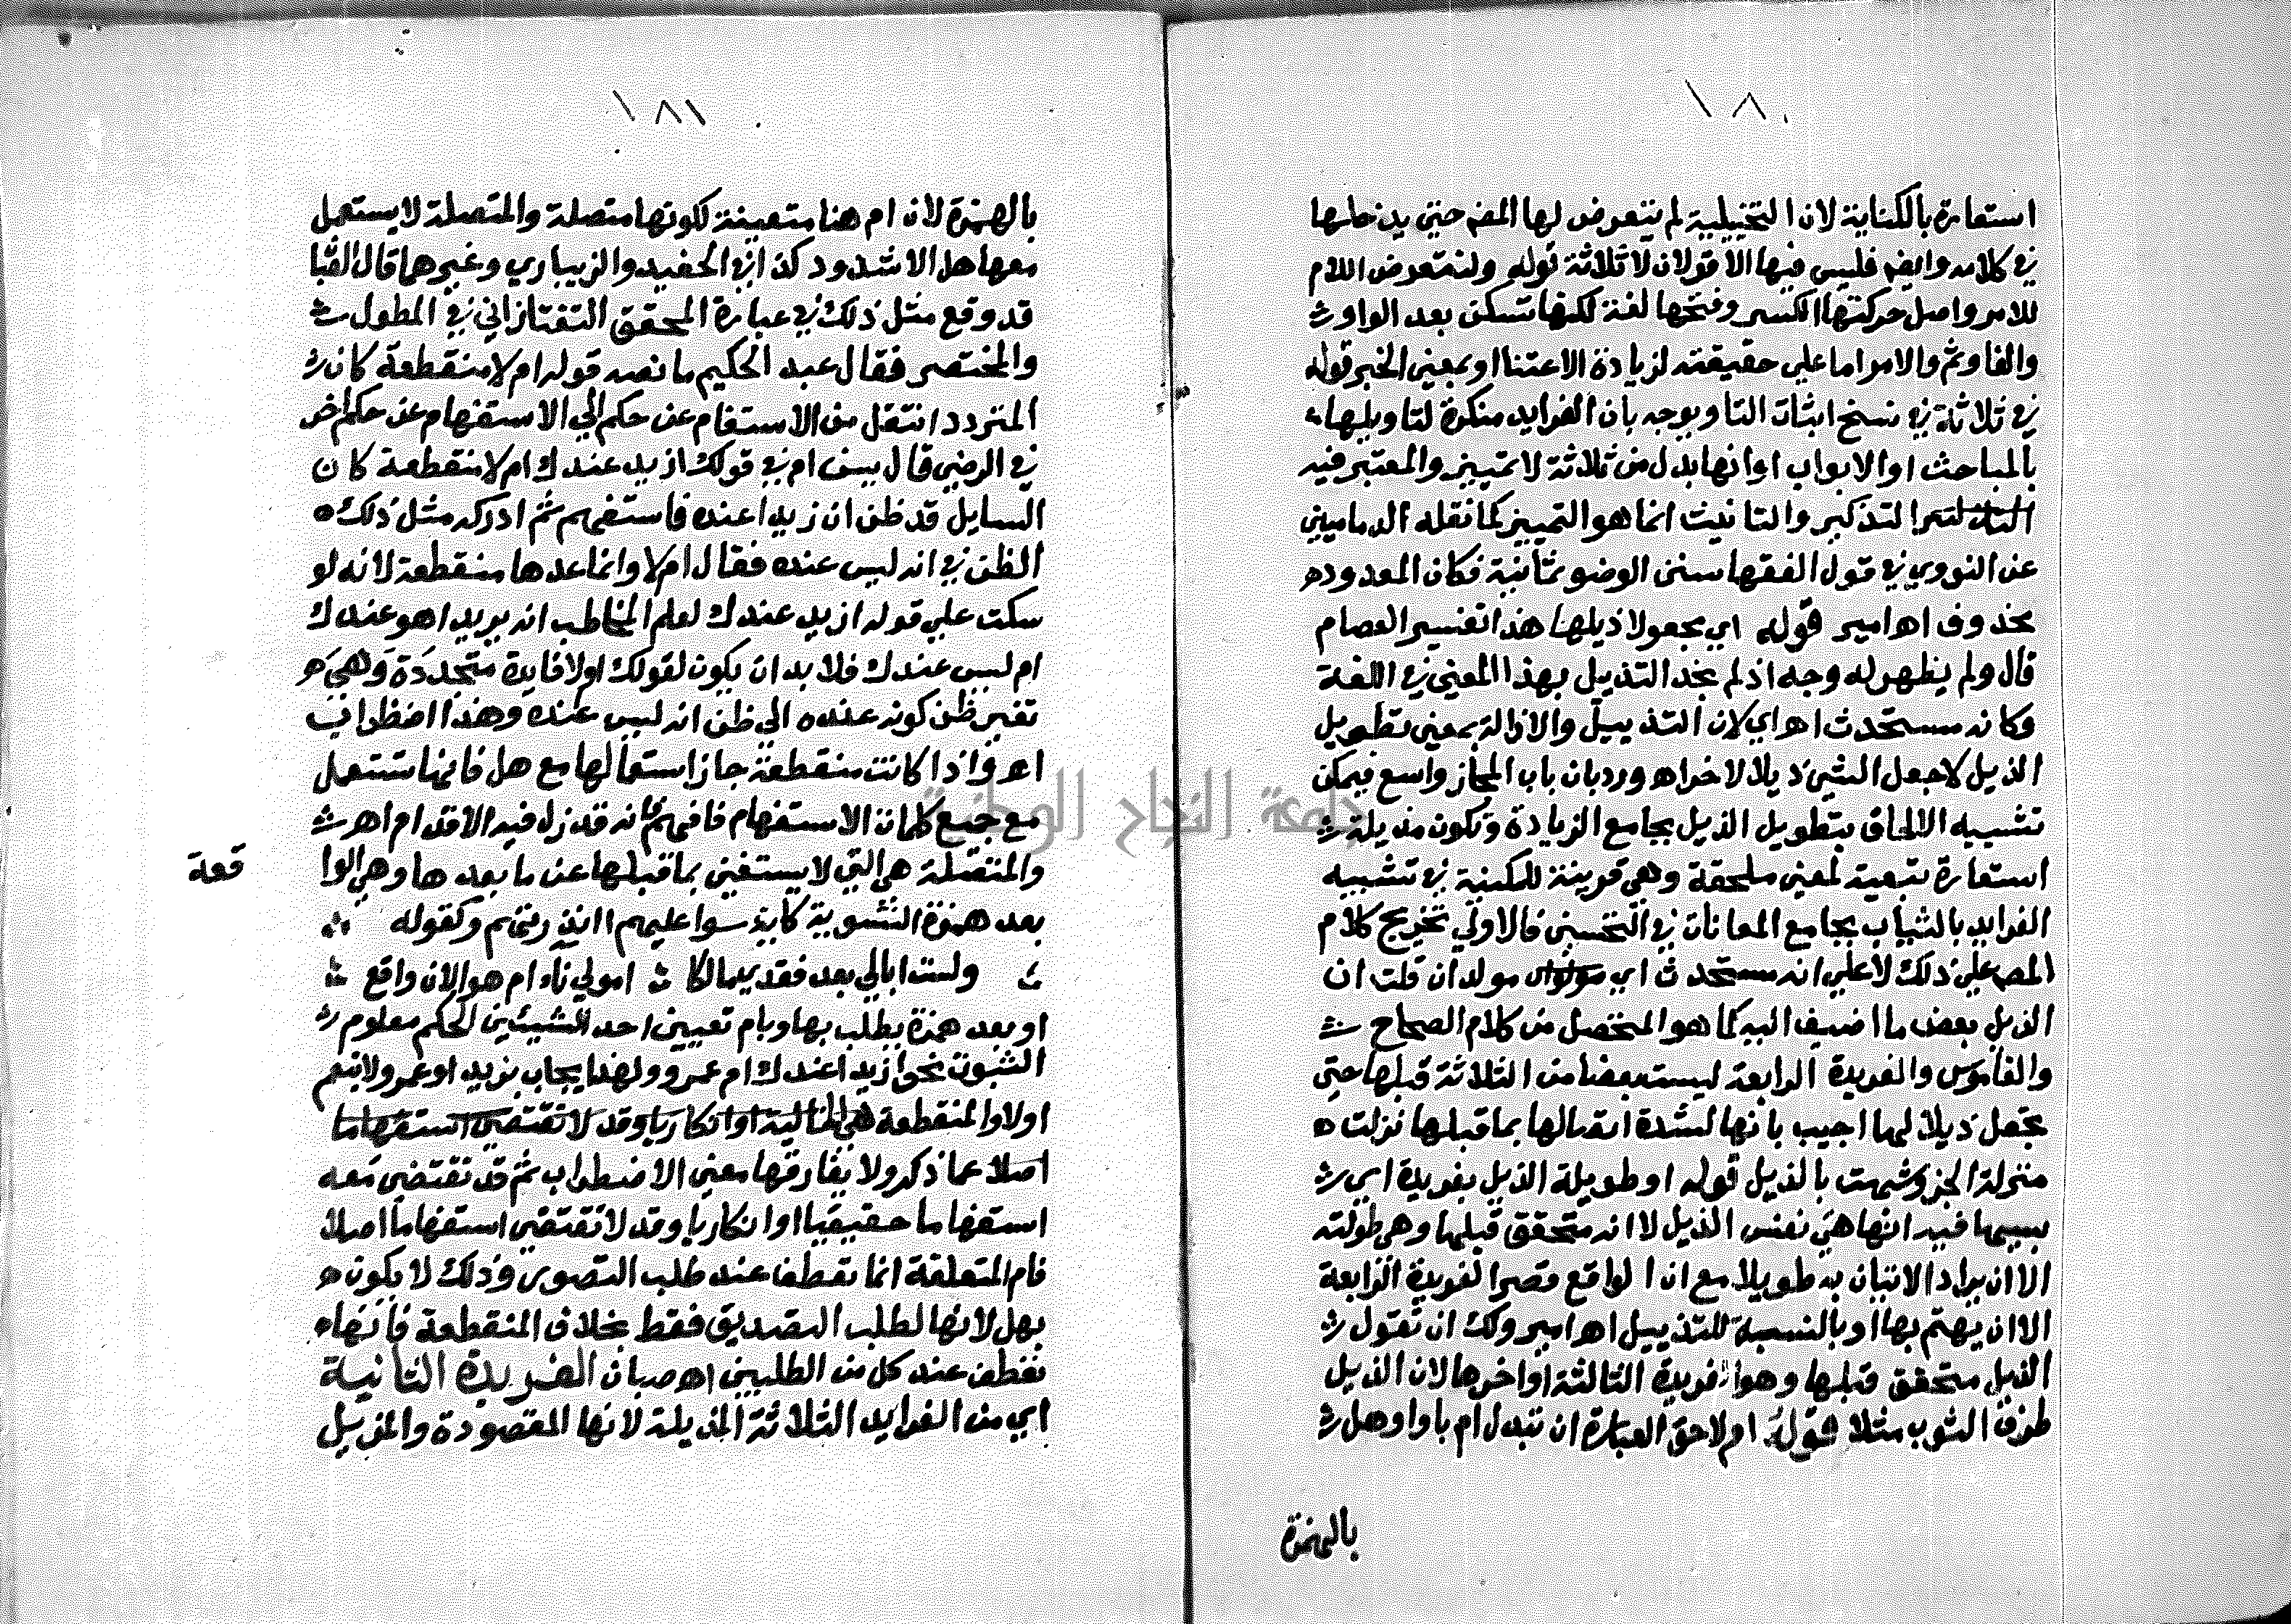 ١٨٠
استعارة بالكناية لان التخييلية لم يتعرض لها المص حتى يدخلها
في كلامه وايضا فليس فيها الا قولان لا ثلاثة قوله ولنتعرض اللام
للامر واصل حركتها الكسر وفتحها لغة لكنها تسكن بعد الواو
والفا وثم والامر اما علي حقيقته لزيادة الاعتنا او بمعني الخبر قوله
في ثلاثة في نسخ اثبات التا ويوجه بان الفرايد منكرة لتاويلها
بالمباحث او الابواب او انها بدل من ثلاثة لا تمييز والمعتبر فيه
التذكير والتانيث انما هو التمييز كما نقله الدماميني
عن النووي في قول الفقها سنن الوضو ثمانية فكان المعدود
محذوف اه امير قوله اي مجعولا ذيلها هذا تفسير العصام
قال ولم يظهر له وجه اذ لم نجد التذييل بهذا المعني في اللغة
وكانه مستحدث اه اي لان التذييل والاذالة بمعني تطويل
الذيل لا جعل الشي ذيلا لاخر اه ورد بان باب المجاز واسع فيمكن
تشبيه الالحاق بتطويل الذيل بجامع الزيادة وتكون مذيلة
استعارة تبعية لمعني ملحقة وهي قرينة للمكنية في تشبيه
الفرايد بالثياب بجامع المعانات في التحسين فالاولي تخريج كلام
المص علي ذلك لا علي انه مستحدث اي مولد ان قلت ان
الذيل بعض ما اضيف اليه كما هو المتحصل من كلام الصحاح
والقاموس والفريدة الرابعة ليست بعضا من الثلاثة قبلها حتي
تجعل ذيلا لها اجيب بانها لشدة اتصالها بما قبلها نزلت
منزلة الجز وشبهت بالذيل قوله او طويلة الذيل بفريدة اي
بسببها فيه انها هي نفس الذيل لا انه متحقق قبلها وهي طولته
الا ان يراد الاتيان به طويلا مع ان الواقع قصر الفريدة الرابعة
الا ان يهتم بها او بالنسبة للتذييل اه امير ولك ان تقول
الذيل متحقق قبلها وهو الفريدة الثالثة او اخرها لان الذيل
طرف الثوب مثلا قوله ام لا حق العبارة ان تبدل ام باو او هل
بالهمزة
١٨١
بالهمزة لان ام هنا متعينة لكونها متصلة والمتصلة لا يستعمل
معها هل الا شذوذ كذا في الحفيد والزيباري وغيرهما قال
قد وقع مثل ذلك في عبارة المحقق التفتازاني في المطول
والمختصر فقال عبد الحكيم ما نصه قوله ام لا منقطعة كان
المتردد انتقل من الاستفهام عن حكم الي الاستفهام عن حكم اخر
في الرضي قال يس ام في قولك ازيد عندك ام لا منقطعة كان
السايل قد ظن ان زيدا عنده فاستفهم ثم ادركه مثل ذلك
الظن في انه ليس عنده فقال ام لا وانما عدها منقطعة لانه لو
سكت علي قوله ازيد عندك لعلم المخاطب انه يريد اهو عندك
ام ليس عندك فلا بد ان يكون لقولك ام لا فايدة متجددة وهي
تغير ظن كونه عنده الي ظن انه ليس عنده وهذا اضطراب
اه واذا كانت منقطعة جاز استعمالها مع هل فانها تستعمل
مع جميع كلمات الاستفهام فافهم فانه قد زل فيه الاقدام اه
والمتصلة هي التي لا يستغني بما قبلها عن ما بعدها وهي الوا
قعة
بعد همزة التسوية كاية سوا عليهم اانذرتهم وكقوله
ولست ابالي بعد فقدي مالكا اموتي ناء ام هو الان واقع
او بعد همزة يطلب بها وبام تعيين احد الشيئين لحكم معلوم
الثبوت نحو ازيد عندك ام عمرو ولهذا يجاب بزيد او عمرو لا بنعم
اولا والمنقطعة هي الخالية
اصلا عما ذكر ولا يفارقها معني الاضطراب ثم قد تقتضي معه
استفهاما حقيقيا او انكاريا وقد لا تقتضي استفهاما اصلا
فام المتعلقة انما تعطف عند طلب التصور وذلك لا يكون
بهل لانها لطلب التصديق فقط بخلاف المنقطعة فانها
تعطف عند كل من الطلبين اه صبان الفريدة الثانية
اي من الفرايد الثلاثة المذيلة لانها المقصودة والمذيل
جامعة النجاح الوطنية